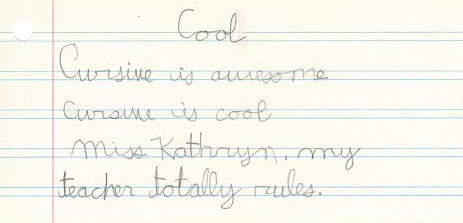 Cool
Cursive is awesome
Cursive is cool
Miss Kathryn, my
teacher totally rules.